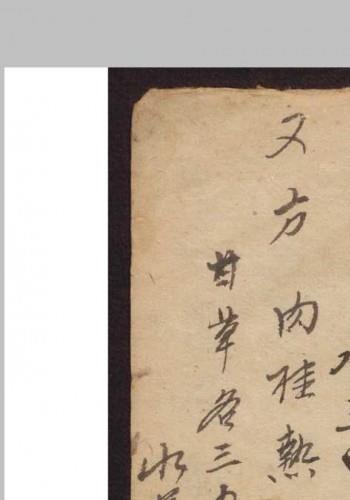 又方肉桂熱
甘草各三
水